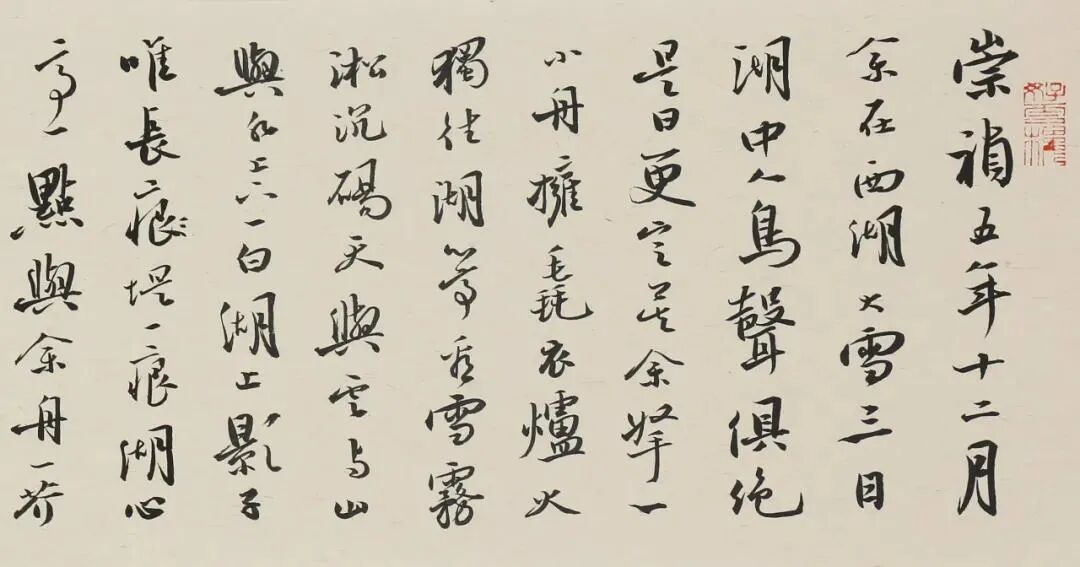 崇禎五年十二月
余在西湖大雪三日
湖中人鳥聲俱絕
是日更定矣余拏一
小舟擁毳衣爐火
獨往湖心亭看雪霧
淞沆碭天與雲与山
與水上下一白湖上影子
唯長痕堤一痕湖心
亭一點與余舟一芥